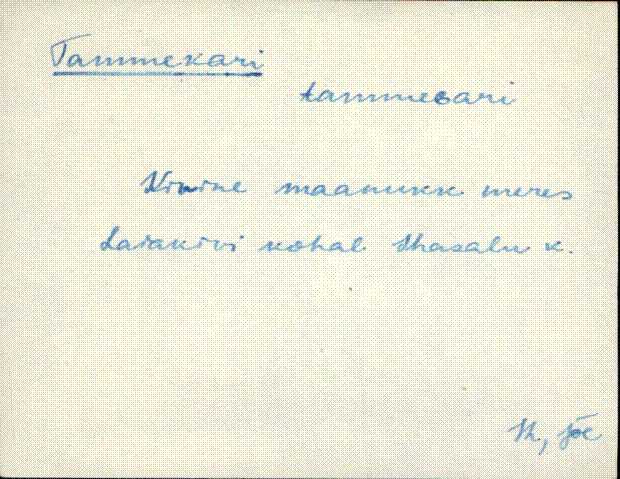 Tammekari
tammecari
Kivine maanukk meres
Laiakivi kohal Ihasalu k.
Ih, Jõe